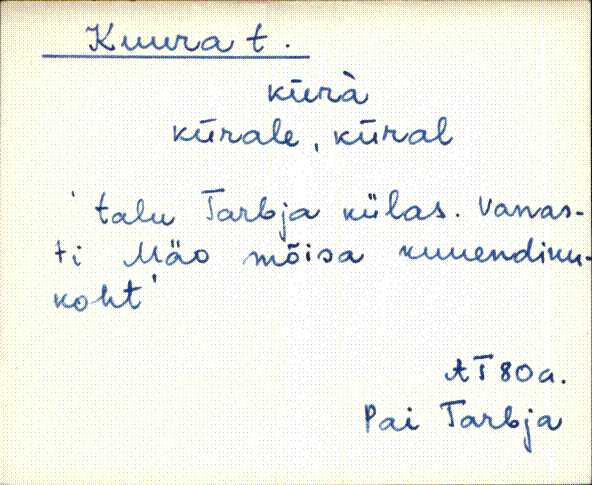 Kuura t.
kūrà
kūrale, kūral
'talu Tarbja külas. Vanas-
ti Mäo mõisa kuuendiku-
koht'
AT 80a.
Pai Tarbja